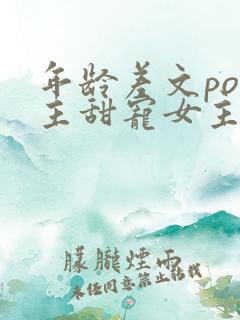 年龄差文po
主甜宠女主
朦胧煙雨
未经同意禁止转载